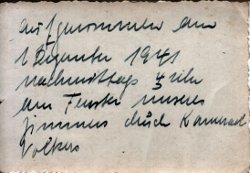 aufgenommen am
1 Dezember 1941
nachmittags 4 Uhr
am Fenster unseres
Zimmers durch Kamerad
Volkers